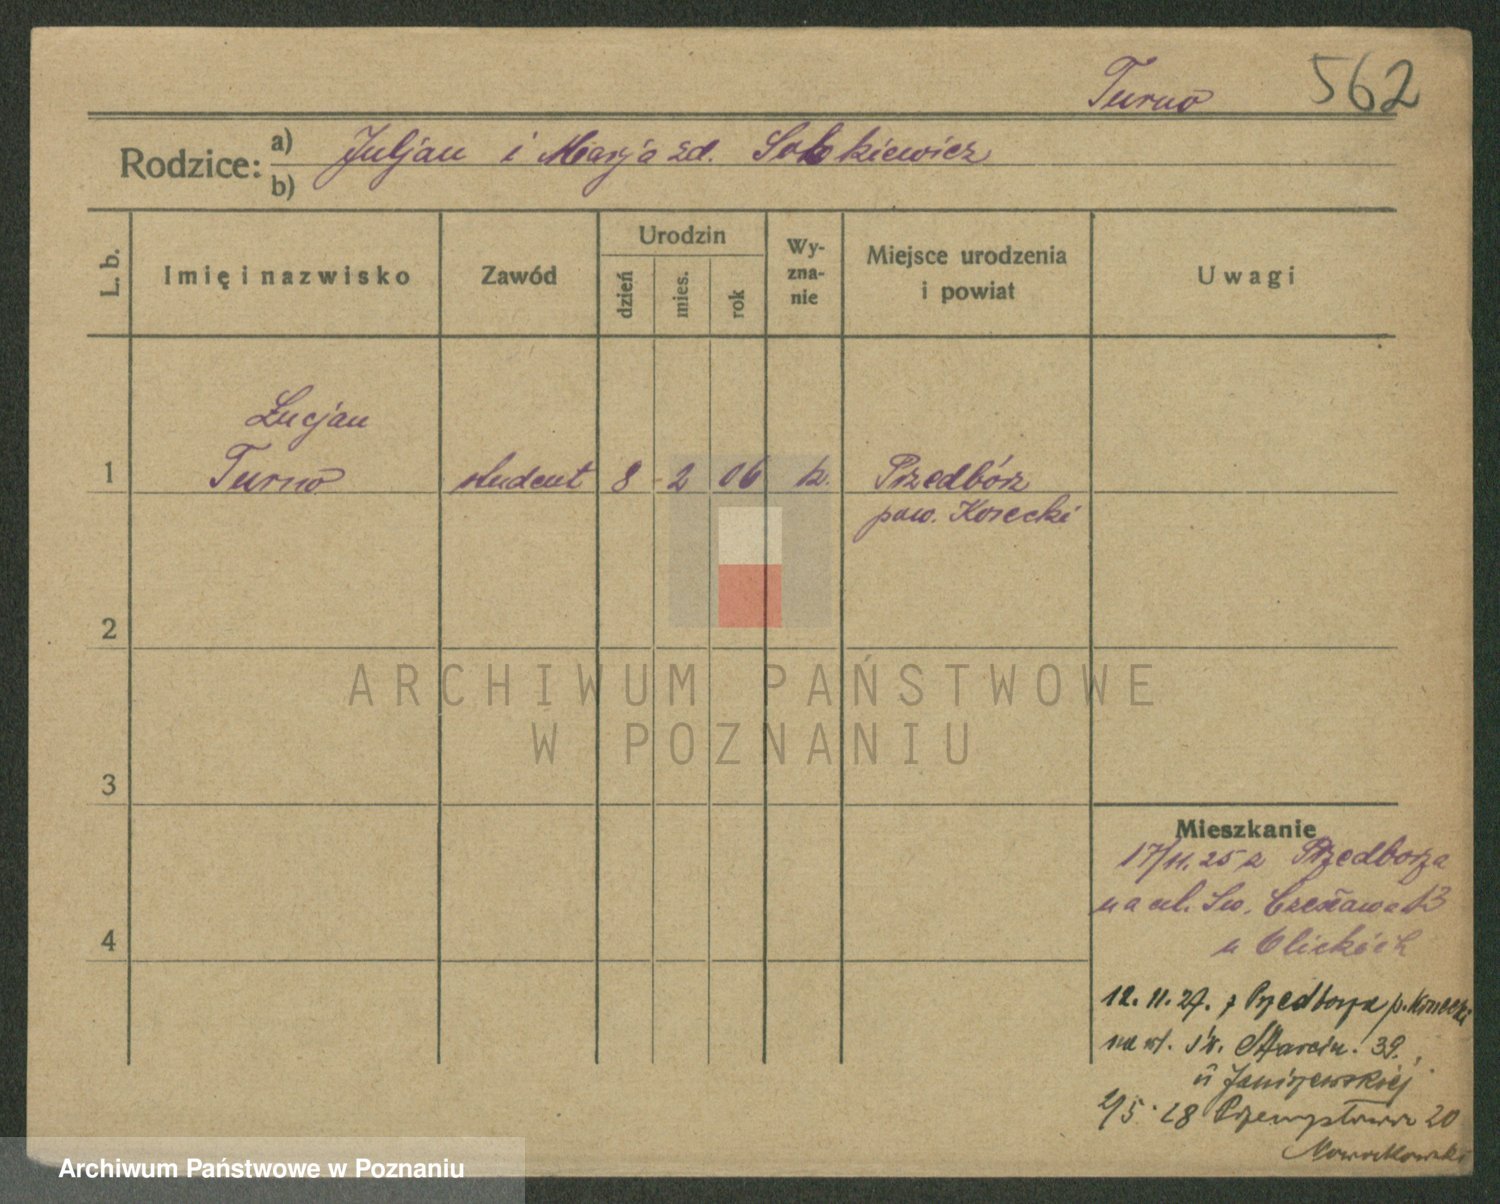 Turno 562
Rodzice: a) Juljan i Marja zd. Sobkiewicz
b)
L. b. Imię i nazwisko Zawód Urodzin dzień mies. rok Wy-zna-nie Miejsce urodzenia i powiat Uwagi
Lucjan
1 Turno student 8 2 06 k. Przedbórz
pow. Konecki
2
ARCHIWUM PAŃSTWOWE
W POZNANIU
3
Mieszkanie
17/11.25 z Przedborza
na ul. Św. Czesława 13
4
u Olickich
12.11.27. z Przedborza p. Konecki
na ul. Św. Marcin. 39.
u Janiszewskiej
2/5.28 Przemysłowa 20
Nowakowski
Archiwum Państwowe w Poznaniu